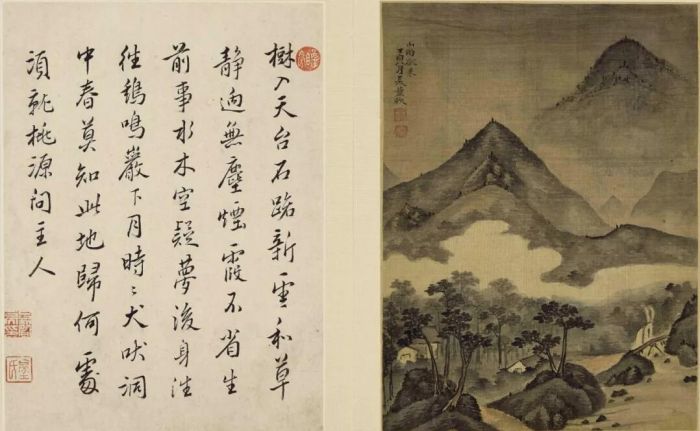 樹入天台石路新雲和草
靜逈無塵煙霞不省生
前事水木空疑夢後身往
往鷄鳴巖下月時〻犬吠洞
中春莫知此地歸何處
須就桃源問主人
山雨欲來